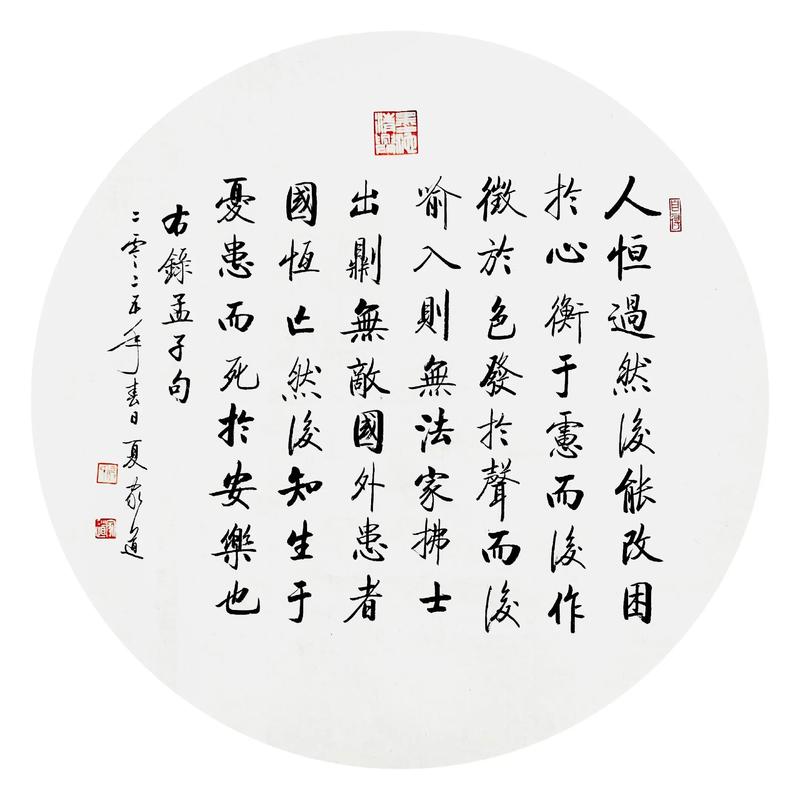 人恒過然後能改困
於心衡于慮而後作
徵於色發於聲而後
喻入則無法家拂士
出則無敵國外患者
國恒亡然後知生于
憂患而死於安樂也
右錄孟子句
二零二五年春日夏家道